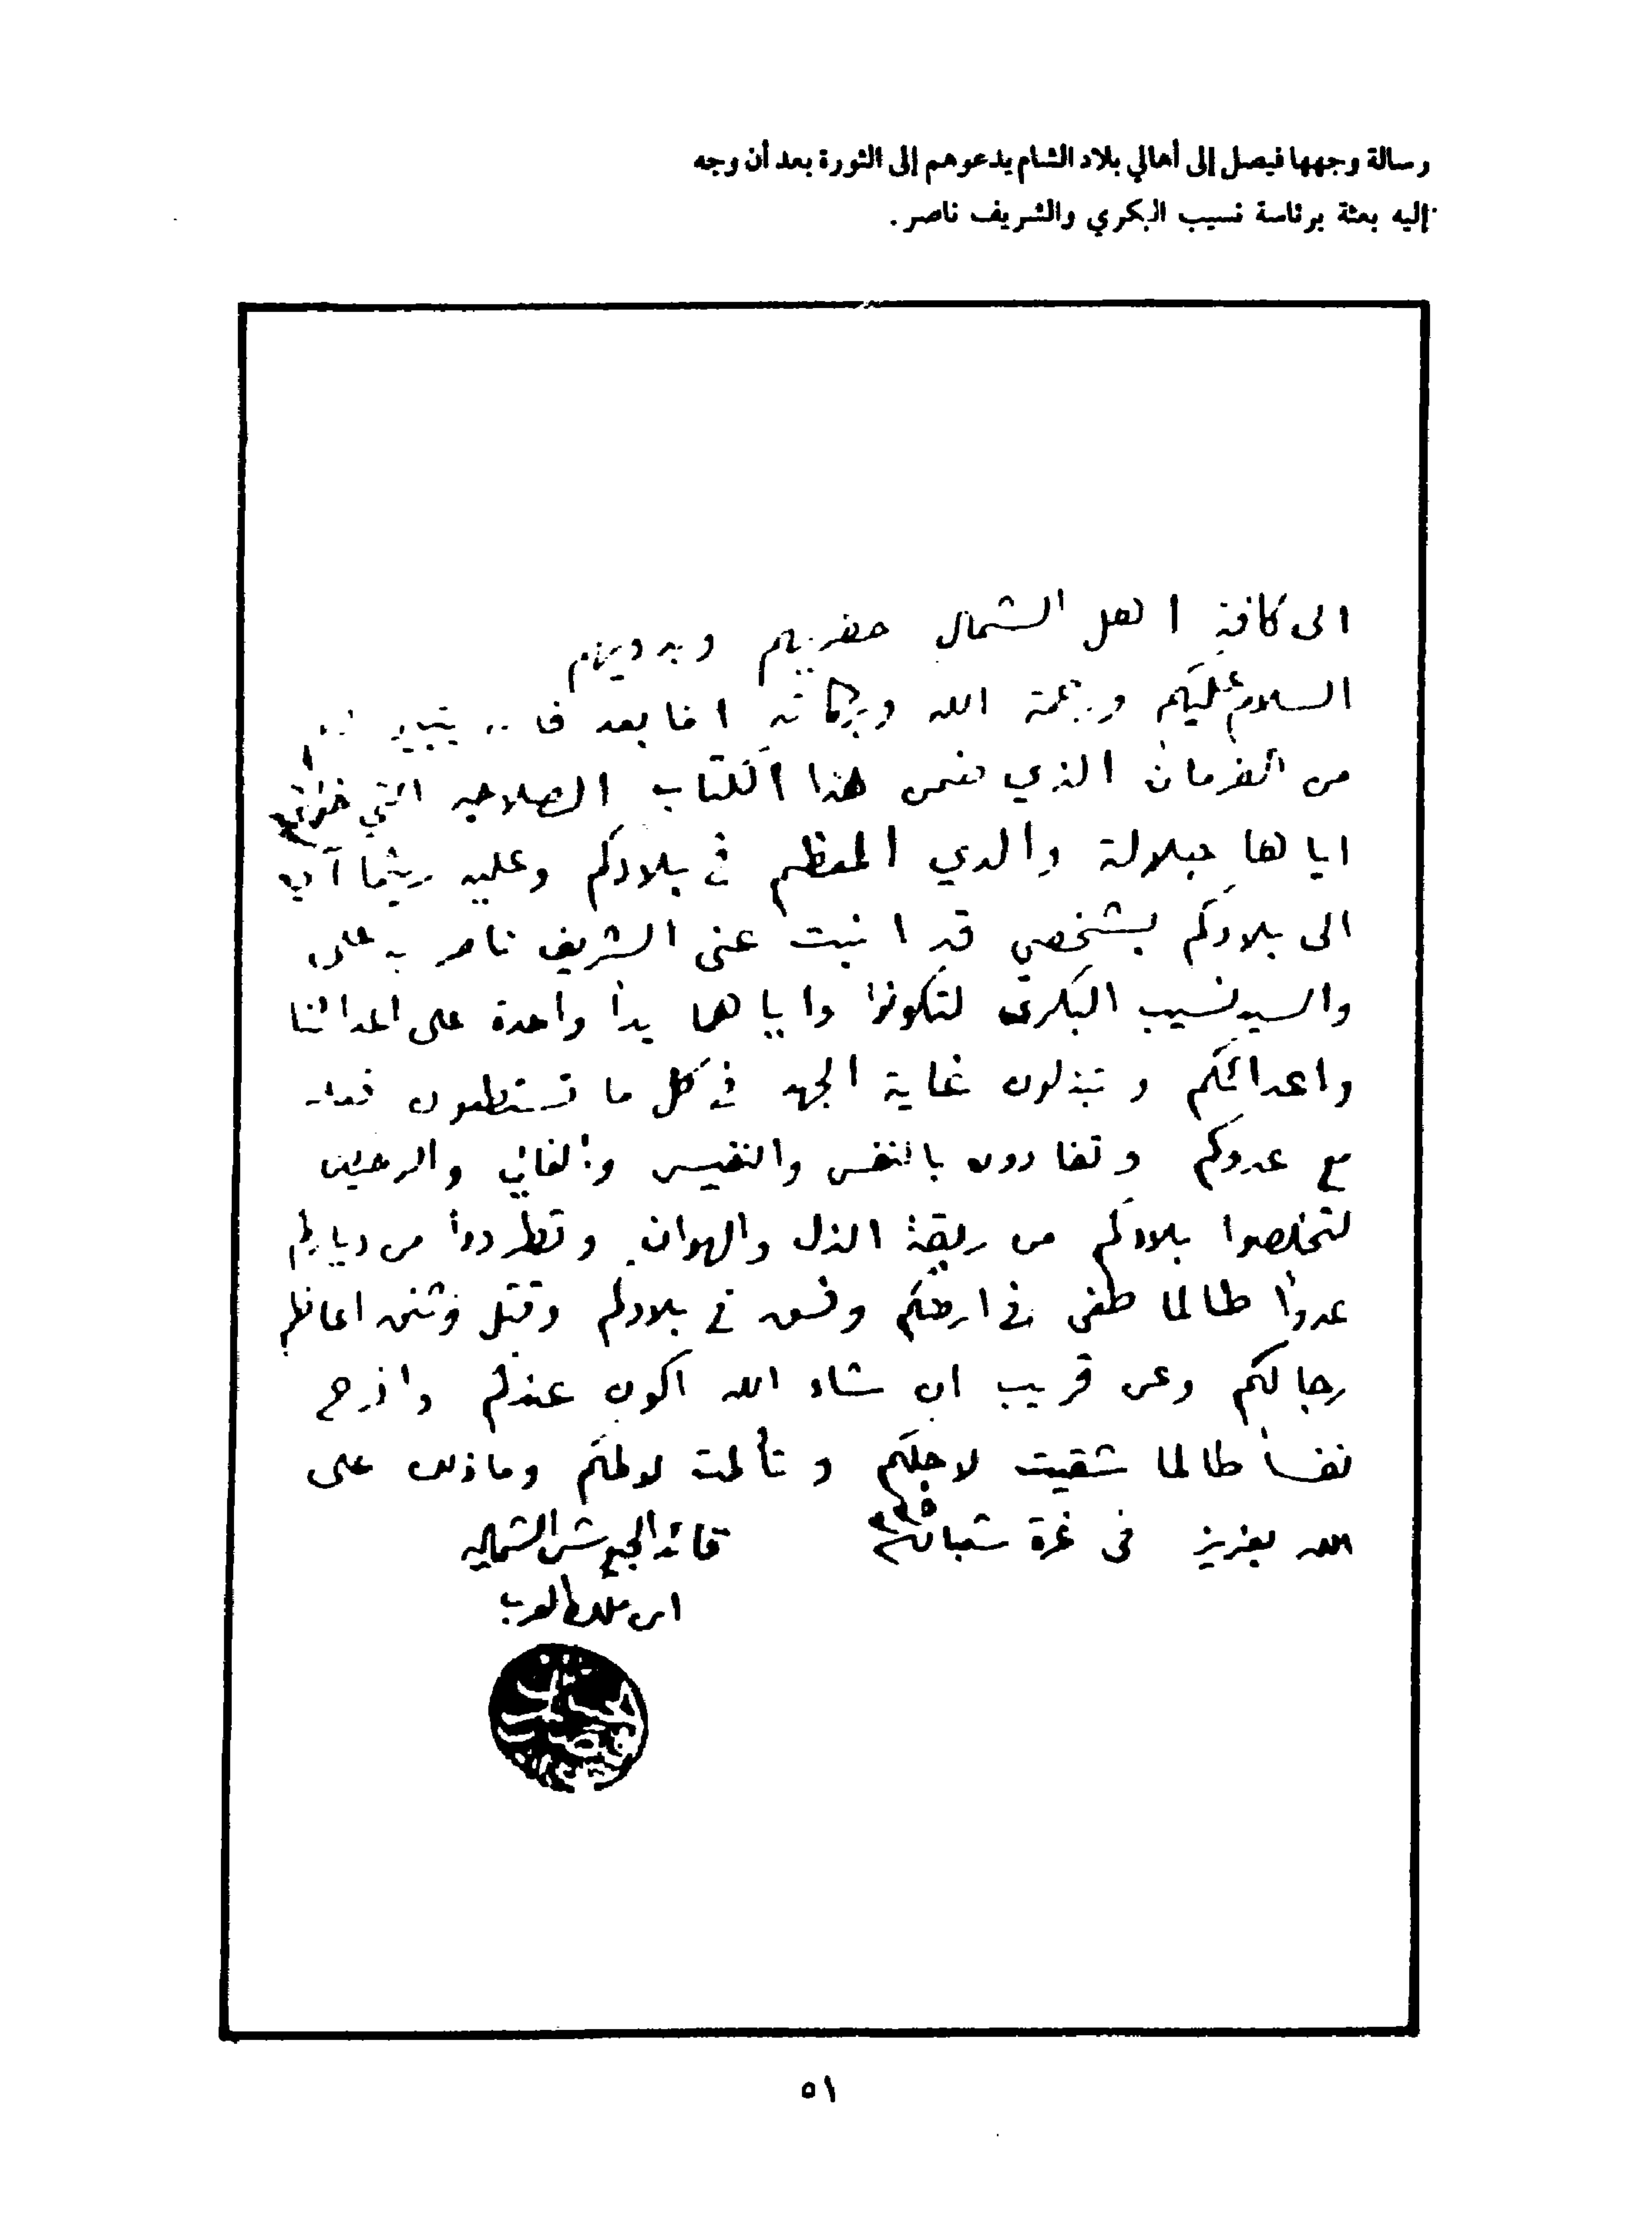 رسالة وجهها فيصل إلى أهالي بلاد الشام يدعوهم إلى الثورة بعد أن وجه
إليه بعثة برئاسة نسيب البكري والشريف ناصر .
الى كافة اهل الشمال حضريهم وبدويهم
السلام عليكم ورحمة الله وبركاته اما بعد
من الفرمان الذي ضمن هذا الكتاب الصلاحيه التي خولني
اياها جلالة والدي المعظم في بلادكم وعليه ريثما آتي
الى بلادكم بشخصي قد انبت عني الشريف ناصر بن علي
والسيد نسيب البكري لتكونوا واياهما يداً واحدة على اعدائنا
واعدائكم وتبذلون غاية الجهد في كل ما تستطيعون
مع عدوكم وتفادون بالنفس والنفيس والغالي والرخيص
لتخلصوا بلادكم من ربقة الذل والهوان وتطردوا من دياركم
عدواً طالما طغى في ارضكم وفسق في بلادكم وقتل وشنق اعاظم
رجالكم وعن قريب ان شاء الله اكون عندكم وافرح
نفساً طالما شقيت لاجلكم وتألمت لالمكم وما ذلك على
الله بعزيز في غرة شعبان ٣٣٥ قائد الجيوش الشماليه
ابن ملك العرب
٥١